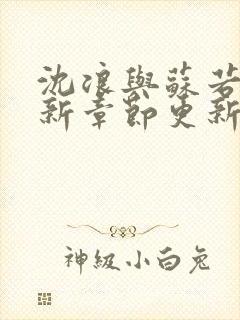 沈浪與蘇若
新章節更新
神級小白兔